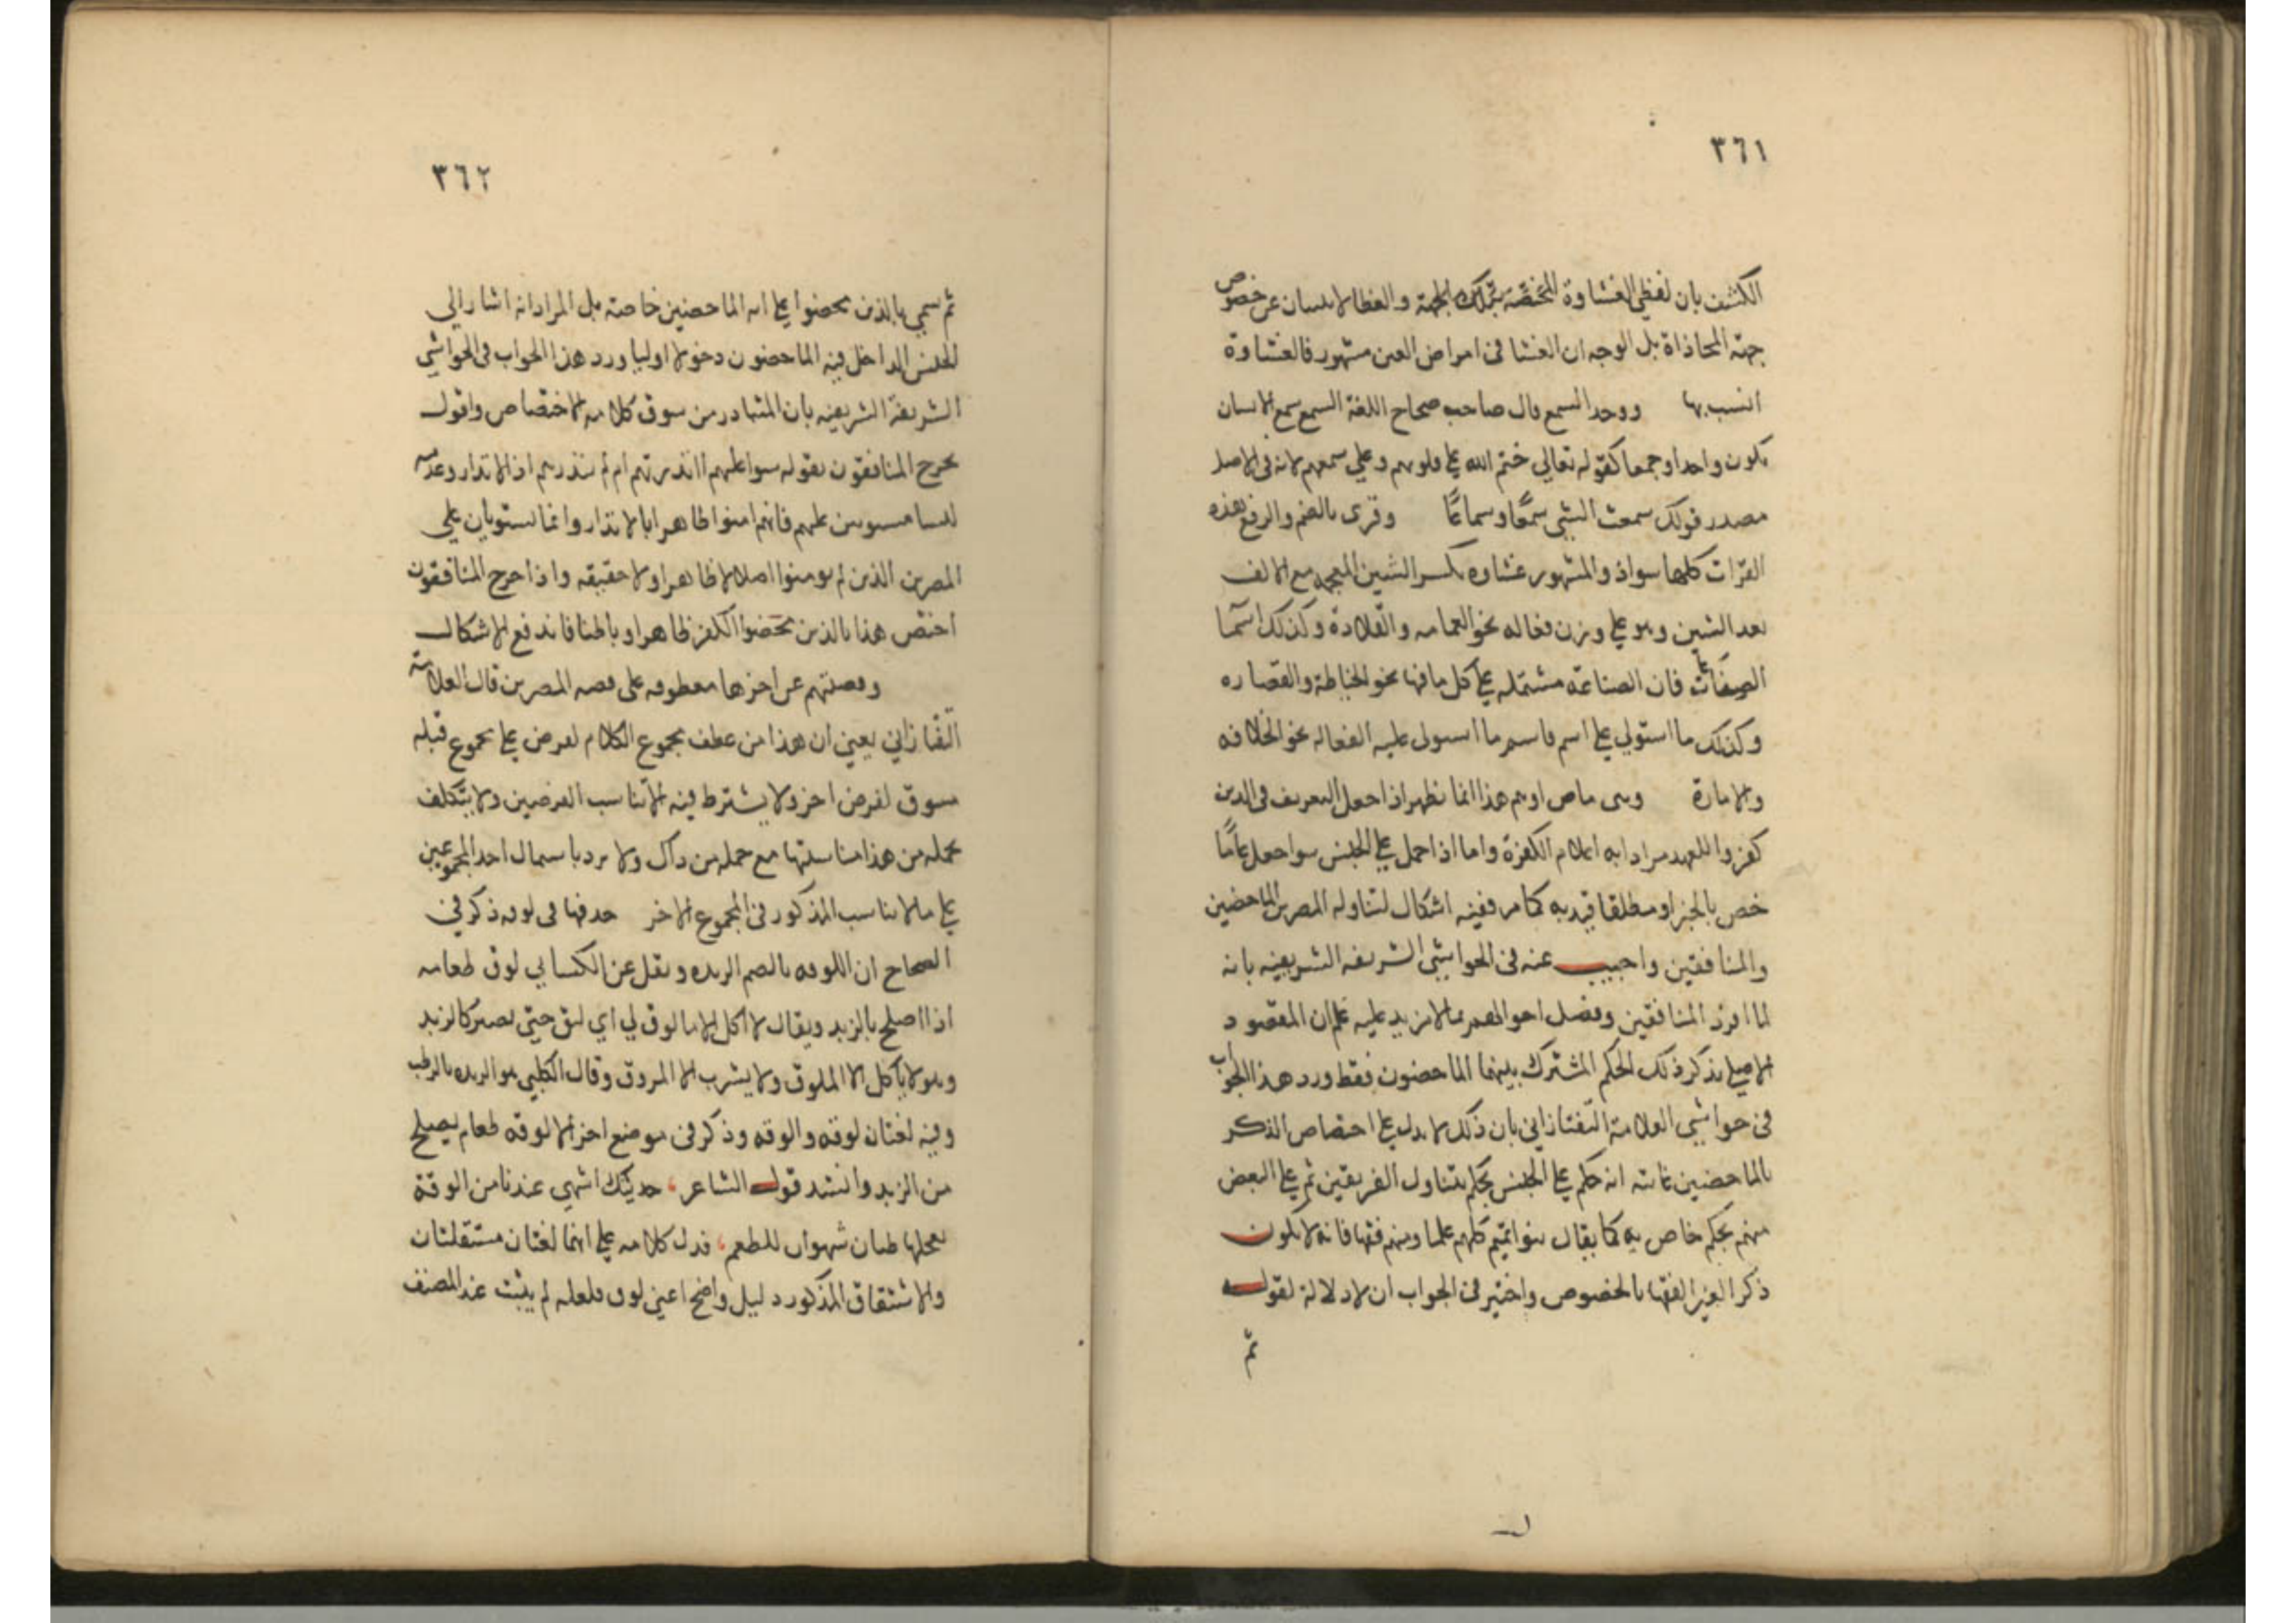 ٣٦١
الكشف بان لفظي الغشاوة المختصة بتلك الجهة والغطا لا ينبيان عن خصوص
جهة المحاذاة بل الوجه ان الغشا فى امراض العين مشهور فالغشاوة
انسب بها ووحد السمع قال صاحب صحاح اللغة السمع سمع الانسان
يكون واحدا وجمعا كقوله تعالي ختم الله على قلوبهم وعلي سمعهم لانه فى الاصل
مصدر قولك سمعت الشي سمعًا وسماعًا وقرى بالضم والرفع هذه
القرات كلها سواذ والمشهور غشاوه بكسر الشين المعجمه مع الالف
بعد الشين وهو على وزن فعاله نحو العمامه والقلادة وكذلك اسما
الصناعات فان الصناعة مشتمله على كل ما فيها نحو الخياطة والقصاره
وكذلك ما استولي على اسم فاسم ما استولى عليه الفعاله نحو الخلافه
والامارة هذا انما يظهر اذا جعل التعريف فى الذين
كفروا للعهد مرادا به اعلام الكفرة واما اذا حمل على الجنس سوا جعل عامًا
خص بالخبر او مطلقا قيد به كما مر ففيه اشكال لتناوله المصرين الماحضين
والمنافقين واجيب عنه فى الحواشي الشريفه الشريفيه بانه
لما افرد المنافقين وفصل احوالهم بما لا مزيد عليه علم ان المقصود
الاصلي بذكر ذلك الحكم المشترك بينهما الماحضون فقط ورد هذا الجواب
فى حواشي العلامة التفتازاني بان ذلك لا يدل على اختصاص الذكر
بالماحضين غايته انه حكم على الجنس بحكم يتناول الفريقين ثم على البعض
منهم بحكم خاص به كما يقال بنو اتميم كلهم علما ومنهم فقها فانه لا يكون
ذكر الغير الفقها بالخصوص واختير فى الجواب ان لا دلالة لقوله
ثم
٣٦٢
ثم سمي بالذين محضوا على انه الماحضين خاصة بل المراد انه اشار الي
الجنس الداخل فيه الماحضون دخولا اوليا ورد هذا الجواب فى الحواشي
الشريفة الشريفيه بان المتبادر من سوق كلامه الاختصاص واقول
يخرج المنافقون بقوله سوا عليهم اانذرتهم ام لم تنذرهم اذ الانذار وعدمه
ليسا مستويين عليهم فانهم امنوا ظاهرا بالانذار وانما يستويان علي
المصرين الذين لم يومنوا اصلا لا ظاهرا ولا حقيقه واذا خرج المنافقون
اختص هذا بالذين محضوا الكفر ظاهرا وباطنا فاندفع الاشكال
وقصتهم عن اخرها معطوفه على قصه المصرين قال العلامة
التفتازاني يعني ان هذا من عطف مجموع الكلام لغرض على مجموع قبله
مسوق لغرض اخر ولا يشترط فيه الا تناسب الغرضين ولا يتكلف
بجمله من هذا مناسبتها مع جمله من ذاك ولا يرد باشتمال احد المجموعين
على ما لا يناسب المذكور فى المجموع الاخر حذفها فى لوقه ذكر في
الصحاح ان اللوقه بالضم الزبده ونقل عن الكسايي لوق طعامه
اذا اصلح بالزبد ويقال لا اكل الا ما لوق لي اي لين حتي يصير كالزبد
وهو لا ياكل الا الملوق ولا يشرب الا المروق وقال الكلبي هو الزبده بالرطب
وفيه لغتان لوقه والوقه وذكر فى موضع اخر الالوقه طعام يصلح
من الزبد وانشد قول الشاعر، حديثك اشهي عندنا من الوقة
يعجلها طيان شهوان للطعم، فدل كلامه على انهما لغتان مستقلتان
والاشتقاق المذكور دليل واضح اعني لوق فلعله لم يثبت عند المصنف